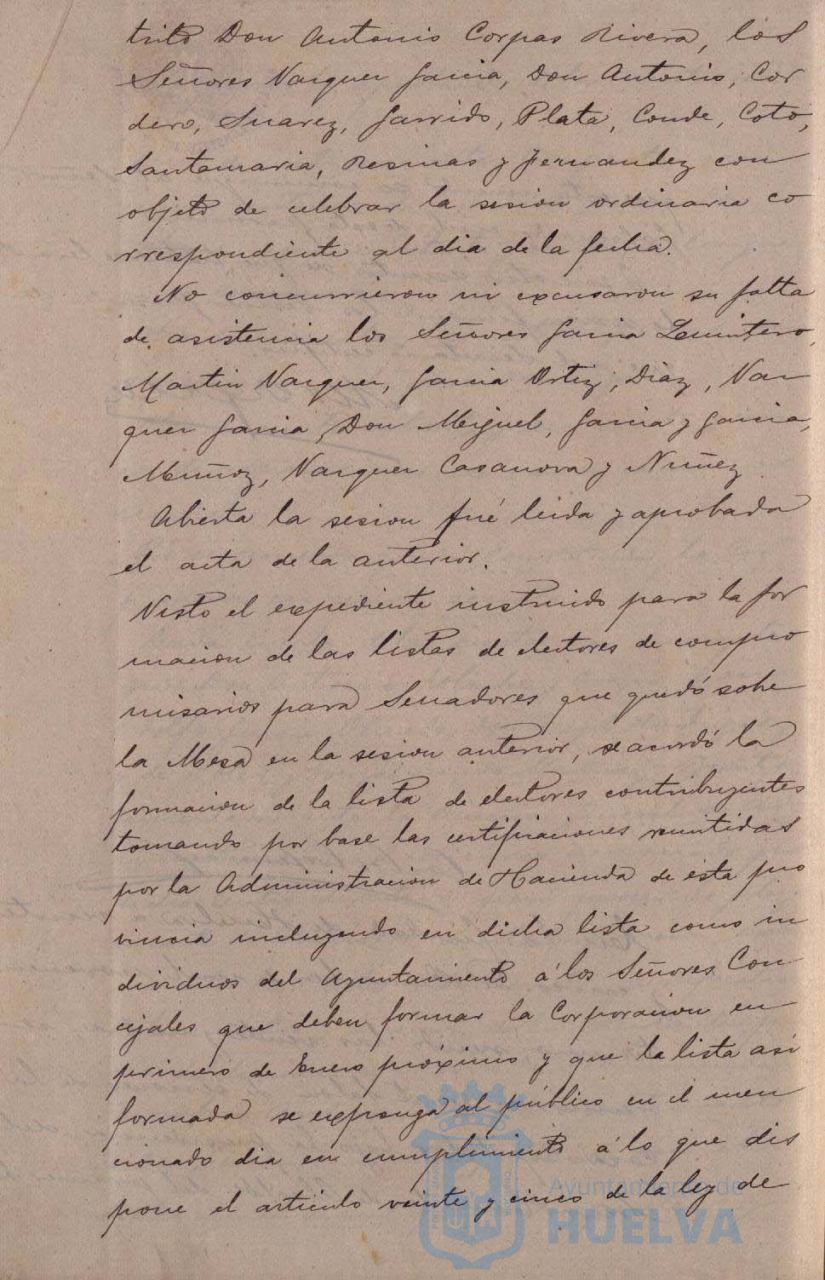 trito Don Antonio Corpas Rivera, los
Señores Vazquez Garcia, Don Antonio, Cor
dero, Suarez, Garrido, Plata, Conde, Coto,
Santamaria, Resinas y Fernandez con
objeto de celebrar la sesion ordinaria co
rrespondiente al dia de la fecha.
No concurrieron ni excusaron su falta
de asistencia los Señores Garcia Quintero,
Martin Vazquez, Garcia Ortiz, Diaz, Vaz
quez Garcia, Don Miguel, Garcia y Garcia,
Muñoz, Vazquez Casanova y Nuñez
Abierta la sesion fué leida y aprobada
el acta de la anterior.
Visto el expediente instruido para la for
macion de las listas de electores de compro
misarios para Senadores que quedó sobre
la Mesa en la sesion anterior, se acordó la
formacion de la lista de electores contribuyentes
tomando por base las certificaciones remitidas
por la Administracion de Hacienda de esta pro
vincia incluyendo en dicha lista como in
dividuos del Ayuntamiento á los Señores Con
cejales que deben formar la Corporacion en
primero de Enero próximo y que la lista asi
formada se exponga al público en el men
cionado dia en cumplimiento á lo que dis
pone el artículo veinte y cinco de la ley de
Ayuntamiento de
HUELVA